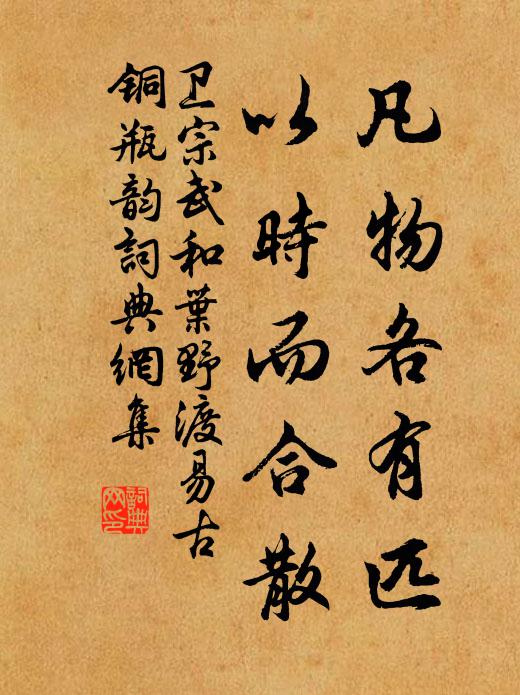 凡物各有匹
以時而合散
卫宗武和葉野渡易古
銅瓶韵詞典網集
詞典
网印